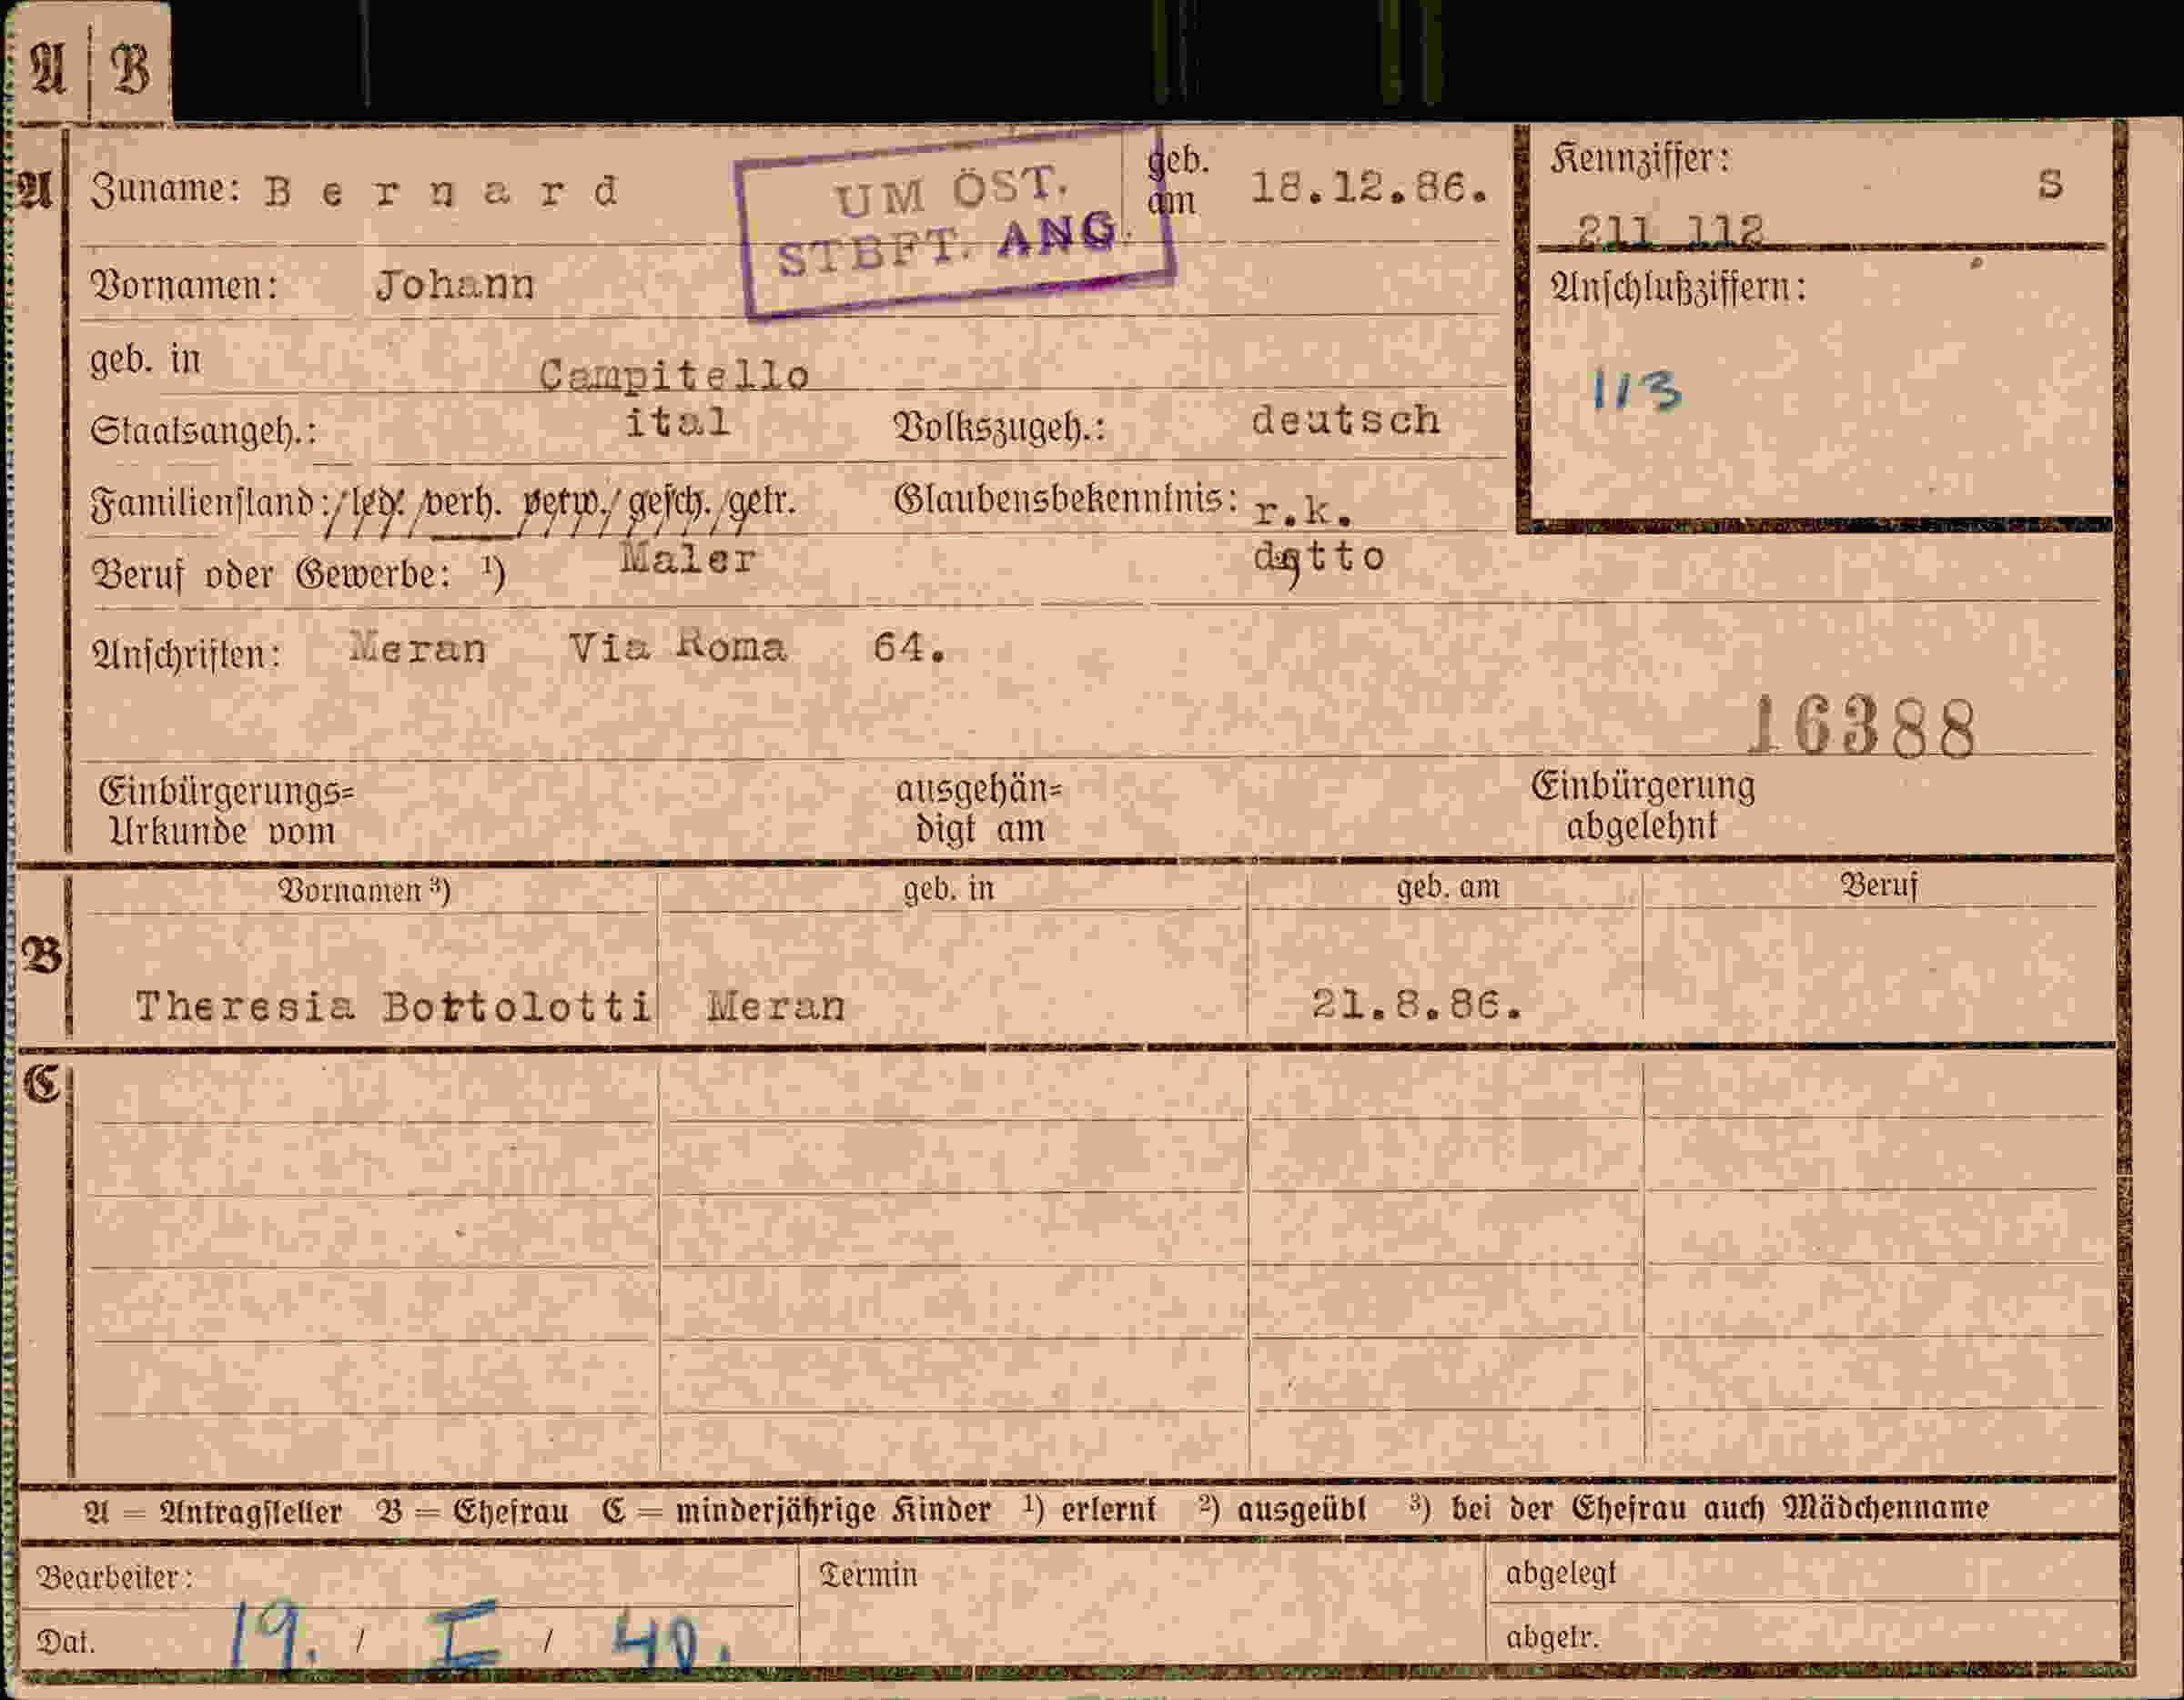 A B
A Zuname: Bernard
UM ÖST.
STBFT. ANG.
geb. am 18.12.86.
Kennziffer: S
211 112
Vornamen: Johann
Anschlußziffern:
113
geb. in Campitello
Staatsangeh.: ital Volkszugeh.: deutsch
Familienstand: led. verh. verw. gesch. getr. Glaubensbekenntnis: r.k.
Beruf oder Gewerbe: ¹) Maler detto
Anschriften: Meran Via Roma 64.
16388
Einbürgerungs=
Urkunde vom
ausgehän=
digt am
Einbürgerung
abgelehnt
Vornamen ³) geb. in geb. am Beruf
B Theresia Bortolotti Meran 21.8.86.
C
A = Antragsteller B = Ehefrau C = minderjährige Kinder ¹) erlernt ²) ausgeübt ³) bei der Ehefrau auch Mädchenname
Bearbeiter: Termin abgelegt
Dat. 19. / I / 40. abgetr.